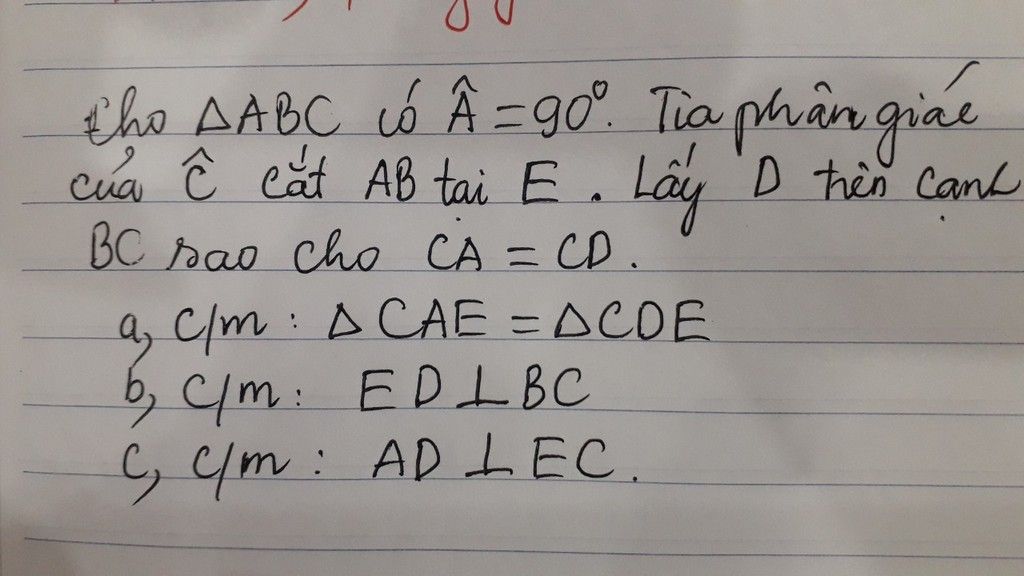 Cho ΔABC có Â = 90°. Tia phân giác
của Ĉ cắt AB tại E. Lấy D trên cạnh
BC sao cho CA = CD.
a, C/m: Δ CAE = ΔCDE
b, C/m: ED ⊥ BC
c, C/m: AD ⊥ EC.